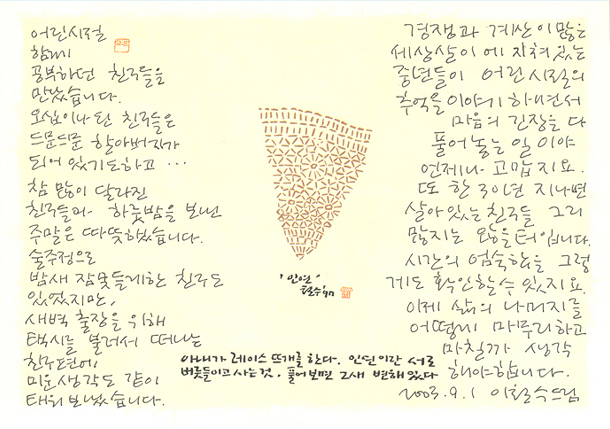 어린시절
함께
공부하던 친구들을
만났습니다.
오십이나 된 친구들은
드문드문 할아버지가
되어 있기도하고 ...
참 많이 달라진
친구들과 하룻밤을 보낸
주말은 따뜻했습니다.
술주정으로
밤새 잠못들게한 친구도
있었지만,
새벽 출장을 위해
택시를 불러서 떠나는
친구편에
미운생각도 같이
태워 보냈습니다.
'인연'
철수
아내가 레이스 뜨개를 한다. 인연이란 서로
버릇들이고 사는것, 풀어보면 그새 변해있다
경쟁과 계산이 많은
세상살이에 지쳐있는
중년들이 어린시절의
추억을 이야기 하면서
마음의 긴장을 다
풀어놓는 일이야
언제나 고맙지요.
또 한 30년 지나면
살아있는 친구들 그리
많지는 않을터입니다.
시간의 엄숙함을 그렇
게도 확인할수 있지요.
이제 삶의 나머지를
어떻게 마무리하고
마칠까 생각
해야합니다.
2003.9.1 이철수드림